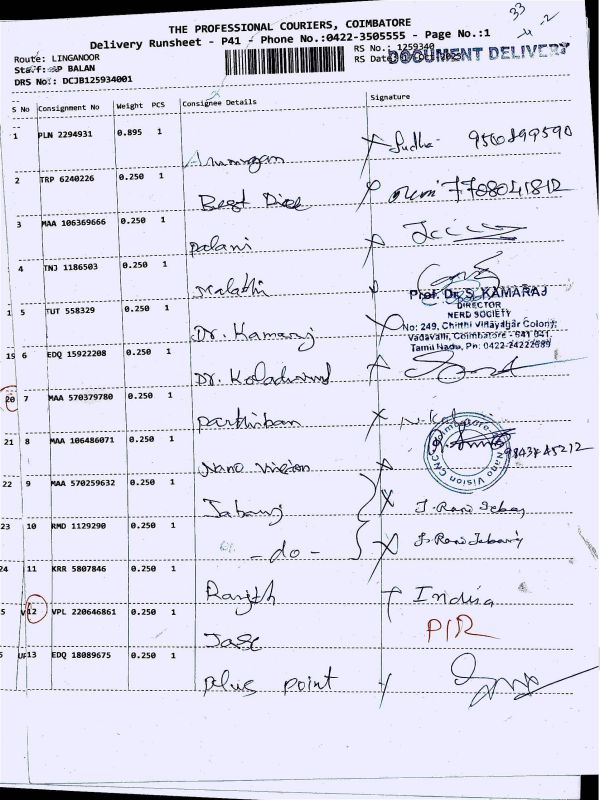 33
THE PROFESSIONAL COURIERS, COIMBATORE
Delivery Runsheet - P41 - Phone No.:0422-3505555 - Page No.:1
Route: LINGANOOR
RS No.: 1259340
DOCUMENT DELIVERY
Staff: BALAN
RS Date
DRS No.: DCJB125934001
S No Consignment No Weight PCS Consignee Details Signature
1 PLN 2294931 0.895 1 Sudha 9500899590
2 TRP 6240226 0.250 1 7708041812
3 MAA 106369666 0.250 1 Palani
4 TNJ 1186503 0.250 1 Malathi
Prof. Dr. S. KAMARAJ
DIRECTOR
NERD SOCIETY
1 5 TUT 558329 0.250 1 Dr. Kamaraj
No: 249, Chinthi Vinayagar Colony,
Vadavalli, Coimbatore - 641 041.
Tamil Nadu, Pn: 0422-24222589
19 6 EDQ 15922208 0.250 1 Dr.
20 7 MAA 570379780 0.250 1 Parthiban
21 8 MAA 106486071 0.250 1 Nano Vision
Nano Vision CNC Coimbatore
22 9 MAA 570259632 0.250 1 Jabaraj J. Rani
23 10 RMD 1129290 0.250 1 - do - J. Rani
24 11 KRR 5807846 0.250 1 Ranjith Indira
5 12 VPL 220646861 0.250 1 P/R
13 EDQ 18089675 0.250 1 Plus point